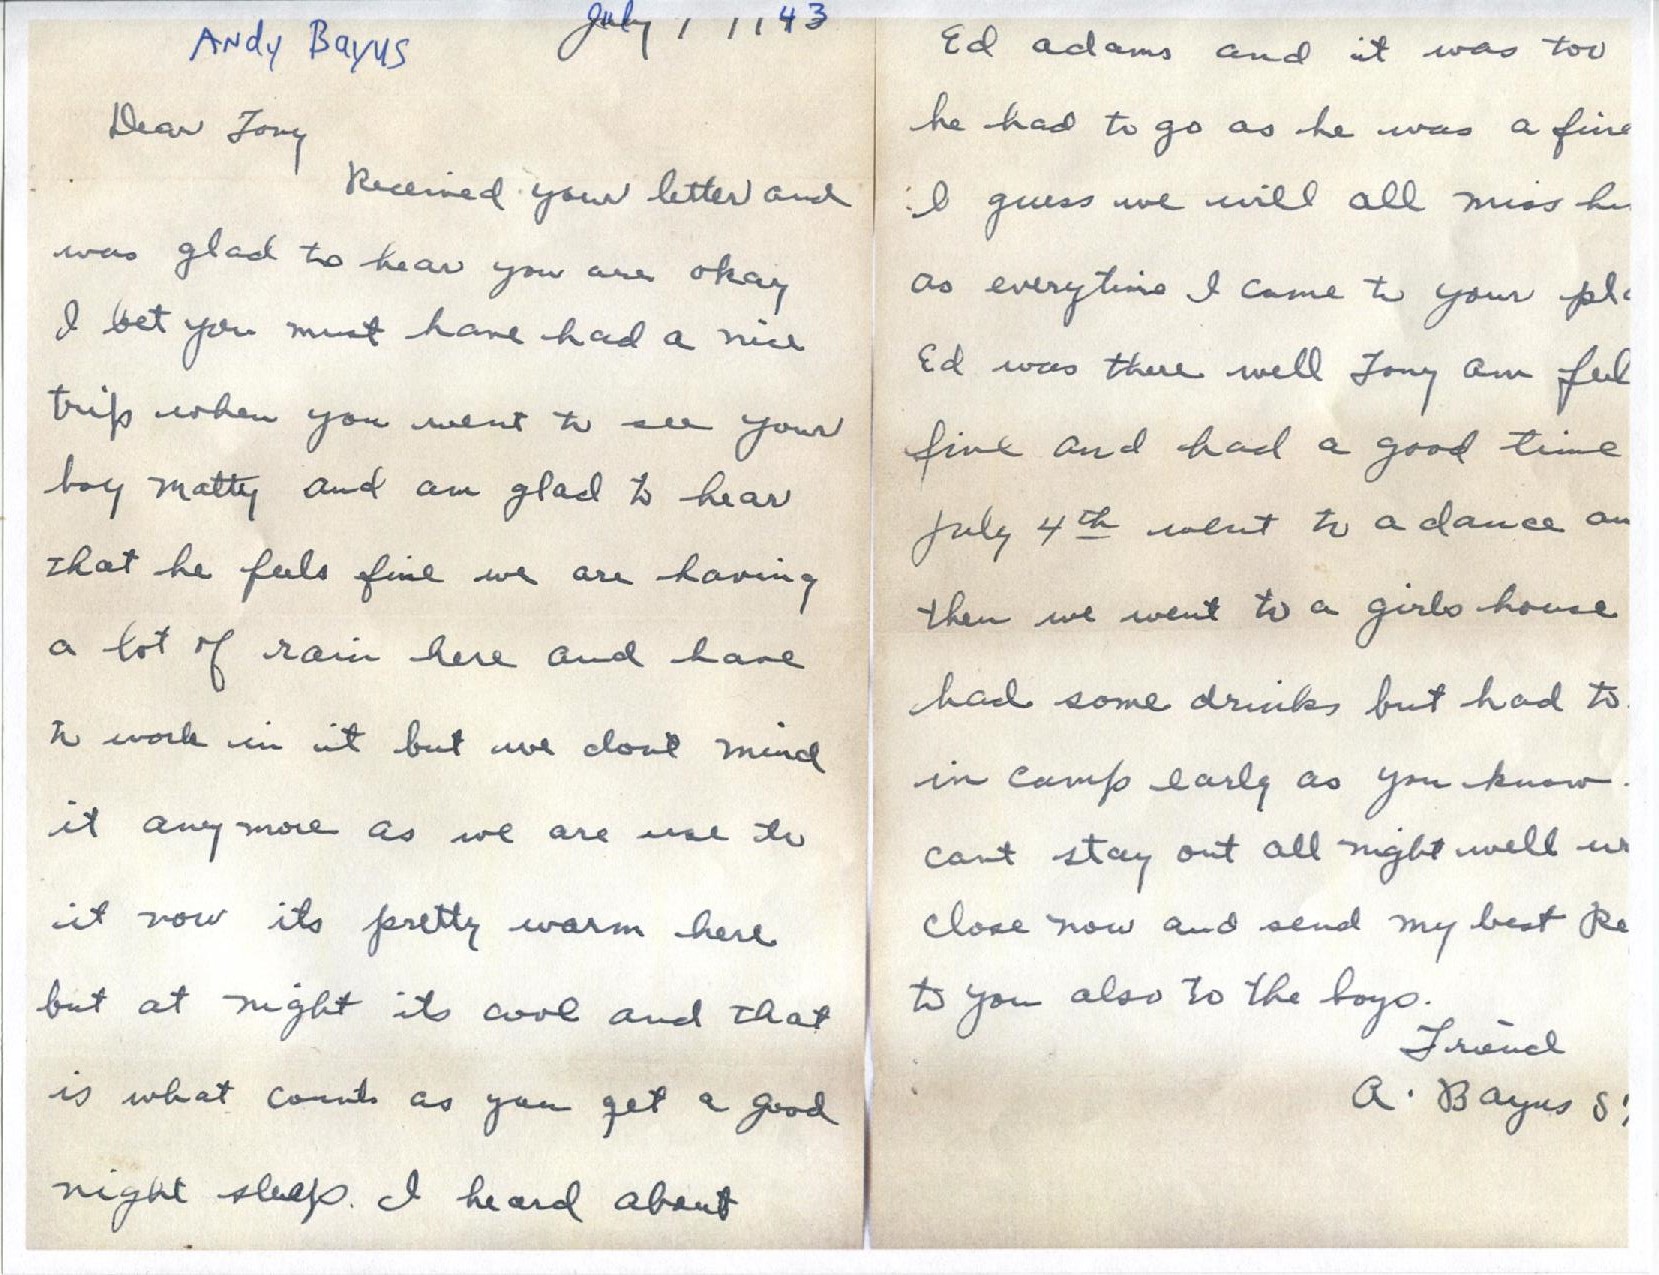 Andy Bayus
July 43
Dear Tony
Received your letter and
was glad to hear you are okay
I bet you must have had a nice
trip when you went to see your
boy Matty and am glad to hear
that he feels fine we are having
a lot of rain here and have
to work in it but we dont mind
it anymore as we are use to
it now its pretty warm here
but at night its cool and that
is what counts as you get a good
night sleep. I heard about
Ed adams and it was too
he had to go as he was a fine
I guess we will all miss
as everytime I came to your
Ed was there well Tony am
fine and had a good time
July 4th went to a dance
then we went to a girls house
had some drinks but had to
in camp early as you know
cant stay out all night well
close now and send my best
to you also to the boys.
Friend
A. Bayus